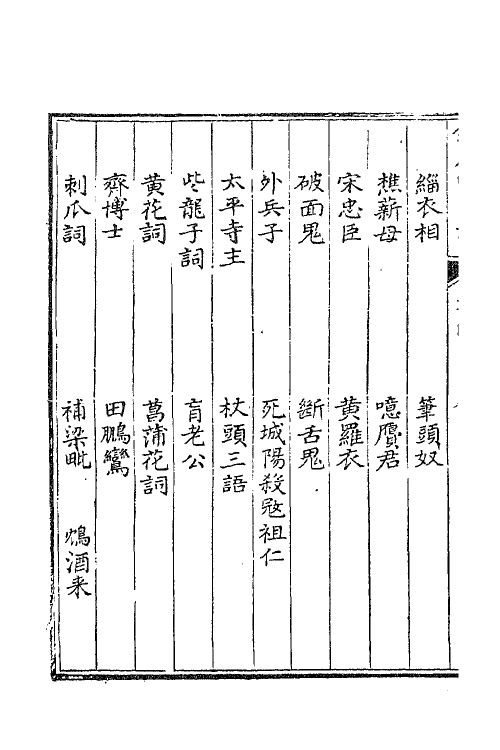 緇衣相　筆頭奴
樵薪母　噫贗君
宋忠臣　黄羅衣
破面鬼　斷舌鬼
外兵子　死城陽殺寇祖仁
太平寺主　杖頭三語
些龍子詞　盲老公
黄花詞　菖蒲花詞
齊博士　田鵬鸞
刺瓜詞　補梁毗　鴆酒来